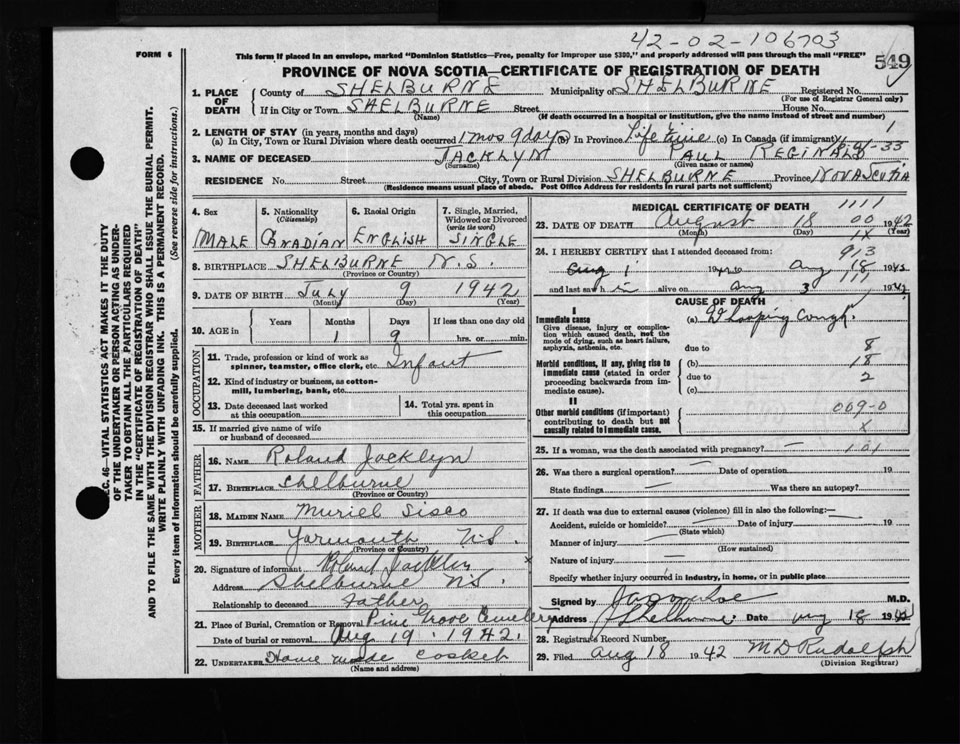 42-02-106703
FORM 6
This form if placed in an envelope, marked "Dominion Statistics—Free, penalty for improper use $300," and properly addressed will pass through the mail "FREE"
549
PROVINCE OF NOVA SCOTIA—CERTIFICATE OF REGISTRATION OF DEATH
SEC. 46—VITAL STATISTICS ACT MAKES IT THE DUTY
OF THE UNDERTAKER OR PERSON ACTING AS UNDER-
TAKER TO OBTAIN ALL THE PARTICULARS REQUIRED
IN THE "CERTIFICATE OF REGISTRATION OF DEATH"
AND TO FILE THE SAME WITH THE DIVISION REGISTRAR WHO SHALL ISSUE THE BURIAL PERMIT.
WRITE PLAINLY WITH UNFADING INK. THIS IS A PERMANENT RECORD.
Every item of Information should be carefully supplied. (See reverse side for Instructions.)
1. PLACE OF DEATH
County of SHELBURNE Municipality of SHELBURNE Registered No.
(For use of Registrar General only)
If in City or Town SHELBURNE Street House No.
(Name) (If death occurred in a hospital or institution, give the name instead of street and number)
2. LENGTH OF STAY (in years, months and days)
(a) In City, Town or Rural Division where death occurred 1 mos 9 days (b) In Province Life Time (c) In Canada (if immigrant) 1
3. NAME OF DECEASED JACKLYN PAUL REGINALD
(Surname) (Given name or names)
RESIDENCE No. Street City, Town or Rural Division SHELBURNE Province NOVA SCOTIA
(Residence means usual place of abode. Post Office Address for residents in rural parts not sufficient)
4. Sex
MALE
5. Nationality (Citizenship)
CANADIAN
6. Racial Origin
ENGLISH
7. Single, Married, Widowed or Divorced (write the word)
SINGLE
8. BIRTHPLACE SHELBURNE N.S.
(Province or Country)
9. DATE OF BIRTH July 9 1942
(Month) (Day) (Year)
10. AGE in Years Months Days If less than one day old
1 9 hrs. or min.
OCCUPATION
11. Trade, profession or kind of work as spinner, teamster, office clerk, etc. Infant
12. Kind of industry or business, as cotton-mill, lumbering, bank, etc.
13. Date deceased last worked at this occupation
14. Total yrs. spent in this occupation
15. If married give name of wife or husband of deceased
FATHER
16. NAME Roland Jacklyn
17. BIRTHPLACE Shelburne
(Province or Country)
MOTHER
18. MAIDEN NAME Muriel Sisco
19. BIRTHPLACE Yarmouth N.S.
(Province or Country)
20. Signature of informant Roland Jacklyn x
Address Shelburne N.S.
Relationship to deceased Father
21. Place of Burial, Cremation or Removal Pine Grove Cemetery
Date of burial or removal Aug 19. 1942.
22. UNDERTAKER Home made casket
(Name and address)
MEDICAL CERTIFICATE OF DEATH 1111
23. DATE OF DEATH August 18 00 1942
(Month) (Day) (Year)
24. I HEREBY CERTIFY that I attended deceased from: 913
Aug 1 19 to Aug 18 19
and last saw h im alive on Aug 3 19
CAUSE OF DEATH
I
Immediate cause
Give disease, injury or complication which caused death, not the mode of dying, such as heart failure, asphyxia, asthenia, etc.
(a) Whooping Cough.
due to 8
Morbid conditions, if any, giving rise to immediate cause (stated in order proceeding backwards from immediate cause).
(b) 18
due to 2
(c)
II
Other morbid conditions (if important) contributing to death but not causally related to immediate cause.
009-0
x
25. If a woman, was the death associated with pregnancy? 101
26. Was there a surgical operation? — Date of operation 19
State findings — Was there an autopsy?
27. If death was due to external causes (violence) fill in also the following:—
Accident, suicide or homicide? — Date of injury 19
(State which)
Manner of injury —
(How sustained)
Nature of injury —
Specify whether injury occurred in industry, in home, or in public place
Signed by M.D.
Address Shelburne Date Aug 18 19
28. Registrar's Record Number
29. Filed Aug 18 1942 M D Rudolph
(Division Registrar)